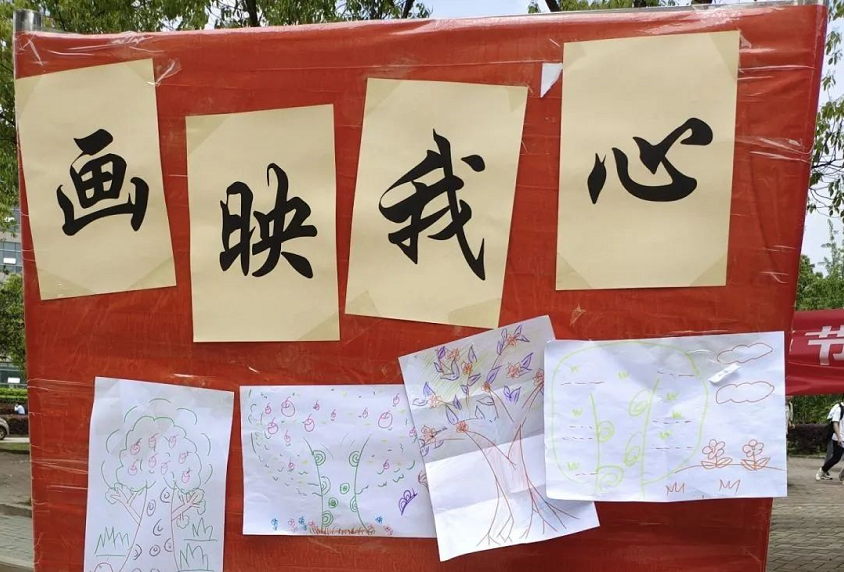 画映我心
节